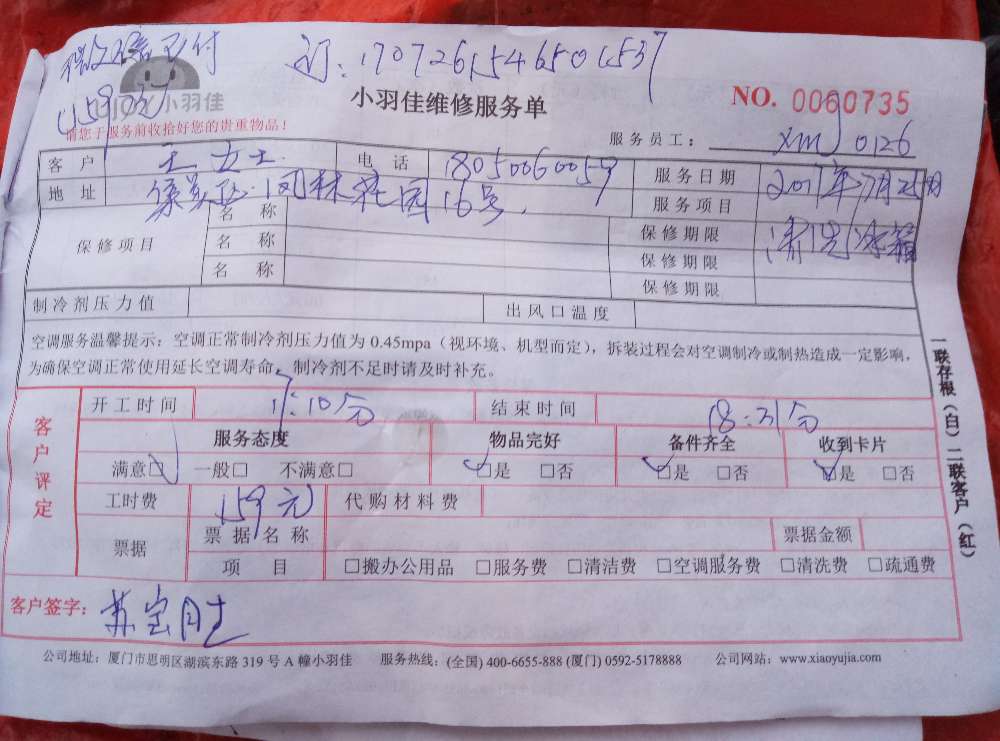 微信已付 订:17072615465001537
(159元) 小羽佳 小羽佳维修服务单 NO. 0060735
请您于服务前收拾好您的贵重物品! 服务员工: xmj0126
客户 王女士 电话 18050060059 服务日期 2017年7月25日
地址 集美区 凤林花园16号. 服务项目 清洗冰箱
保修项目 名称 保修期限
名称 保修期限
名称 保修期限
制冷剂压力值 出风口温度
空调服务温馨提示:空调正常制冷剂压力值为 0.45mpa(视环境、机型而定),拆装过程会对空调制冷或制热造成一定影响,
为确保空调正常使用延长空调寿命,制冷剂不足时请及时补充。
客户评定
开工时间 17:10分 结束时间 18:31分
服务态度 物品完好 备件齐全 收到卡片
满意□ 一般□ 不满意□ □是 □否 □是 □否 □是 □否
工时费 159元 代购材料费
票据 票据名称 票据金额
项目 □搬办公用品 □服务费 □清洁费 □空调服务费 □清洗费 □疏通费
客户签字: 苏宝胜
公司地址:厦门市思明区湖滨东路 319 号 A 幢小羽佳 服务热线:(全国) 400-6655-888 (厦门) 0592-5178888 公司网站:www.xiaoyujia.com
一联存根(白)二联客户(红)